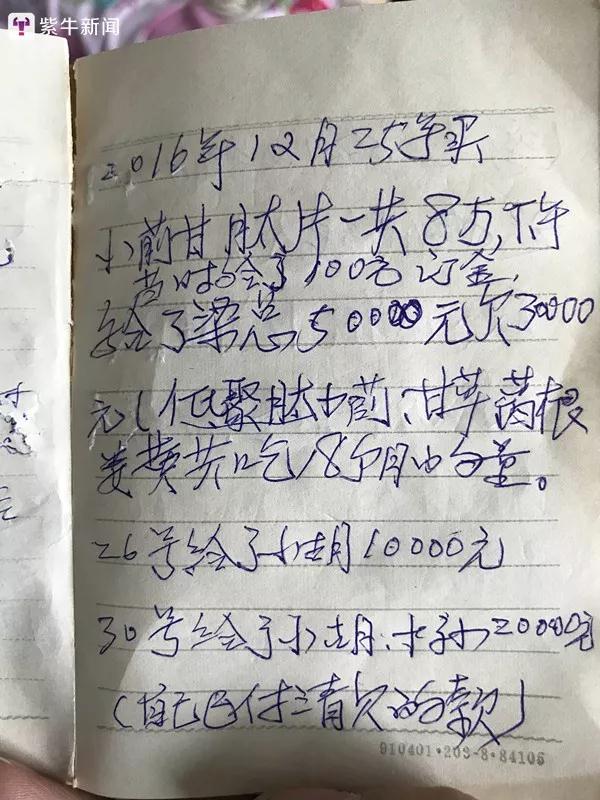 紫牛新闻
2016年12月25号买
小蓟甘肽片一共8万,下午
当时给了100元订金,
给了梁总50000元欠30000
元(低聚肽小蓟、甘草茵根
姜黄共吃18个月的分量。
26号给了小胡10000元
30号给了小胡、小孙20000元
(自己已付清欠的款)
910401·203-8·84106